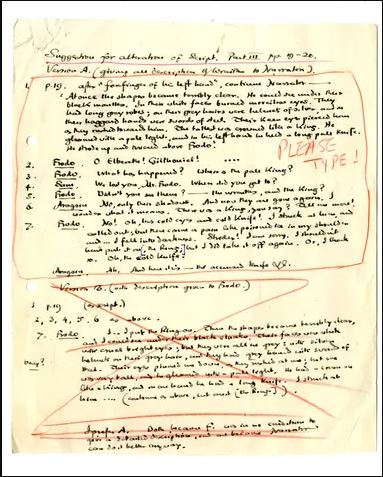 Suggestion for alteration of Script. Part III pp. 19-20.
Version A. (giving all description of to Narrator).
1. p.19. after "forefinger of his left hand", continue Narrator —
At once the shapes became terribly clear. He could see under their
black mantles. In their white faces burned merciless eyes. They
had long grey robes; on their grey hairs were helmets of silver, and in
their haggard hands were swords of steel. Their keen eyes pierced him
as they rushed towards him. The tallest was crowned like a king. He
gleamed with a pale light, and in his left hand he held a long pale knife.
He strode up and towered above Frodo!
PLEASE TYPE!
2. Frodo. O Elbereth! Gilthoniel! ....
3. Frodo. What has happened? Where is the pale king?
4. Sam. We lost you, Mr. Frodo. Where did you get to?
5. Frodo. Didn't you see them? — the wraiths, and the King?
6. Aragorn No, only their shadows. And now they are gone again, I
wonder what it was. There was a king, you say? Tell me more!
7. Frodo. No! Oh, his cold eyes and cold knife! I struck at him, and
called out; but there came a pain like poisoned in my shoulder
and ... I fell into darkness. I am sorry. I shouldn't
have put it on, the Ring, but I did take it off again. Or, I think
so. Oh, the cold knife!
Aragorn. Ah. And here it is — the accursed knife
Version B. (with description given to Frodo).
1 p.19 (as script.)
2, 3, 4, 5, 6 as above.
7. Frodo. I... I put the Ring on. Then the shapes became terribly clear,
and I could see under their black cloaks. Their faces were white
with cruel bright eyes; but they were all in grey; with silver
helmets on their grey hairs, and they had grey hands with swords of
steel. Their eyes pinned me down. They rushed at me; but one
was very tall, and he gleamed with a pale light. He had a crown on
like a king, and in one hand he had a long knife. I struck at
him .... (continue as above, but omit [the Ring] ).
I prefer A. Both because F. was in no condition to
give a detailed description, and also because Narrator
can do it better anyway.